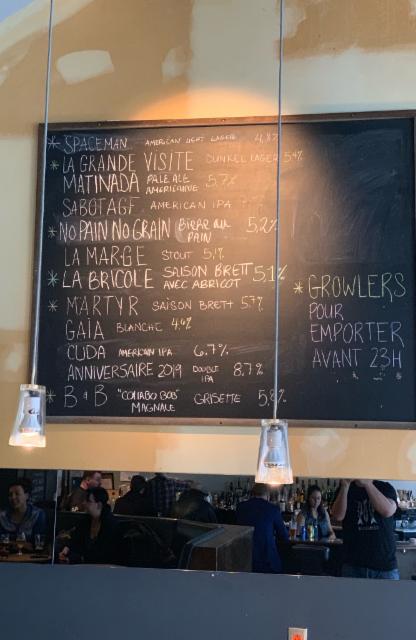 * SPACEMAN AMERICAN LIGHT LAGER 4,8%
* LA GRANDE VISITE DUNKEL LAGER 5,4%
MATINADA PALE ALE AMÉRICAINE 5,7%
SABOTAGE AMERICAN IPA
* NO PAIN NO GRAIN BIÈRE AU PAIN 5,2%
LA MARGE STOUT 5,1%
* LA BRICOLE SAISON BRETT AVEC ABRICOT 5,1%
* MARTYR SAISON BRETT 5,7%
GAIA BLANCHE 4,4%
CUDA AMERICAN IPA 6,7%
ANNIVERSAIRE 2019 DOUBLE IPA 8,7%
* B & B "COMBO BOB" MAGNALE GRISETTE 5,8%
* GROWLERS
POUR
EMPORTER
AVANT 23H